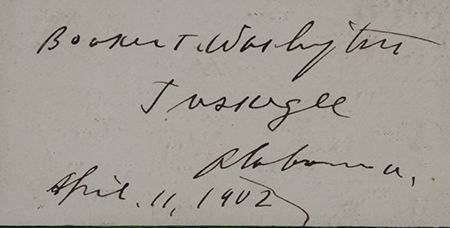 Booker T. Washington
Tuskegee
Alabama,
April. 11, 1902